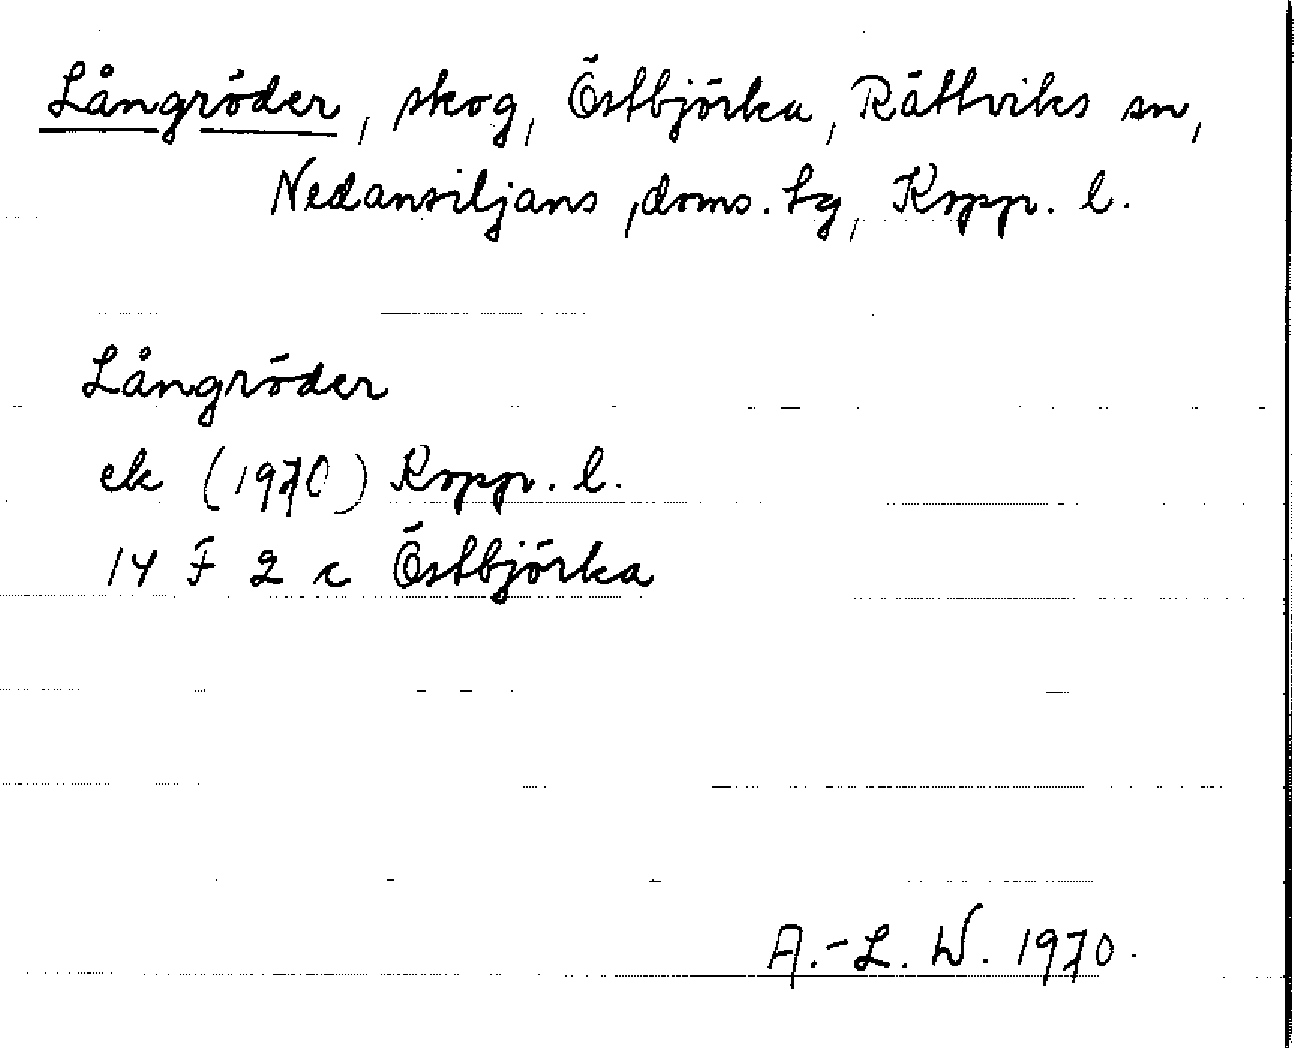 Långröder, skog, Östbjörka, Rättviks sn,
Nedansiljans ,doms. tg, Kopp. l.
Långröder
ek (1970) Kopp. l.
14 F 2 c Östbjörka
A.-L. W. 1970.